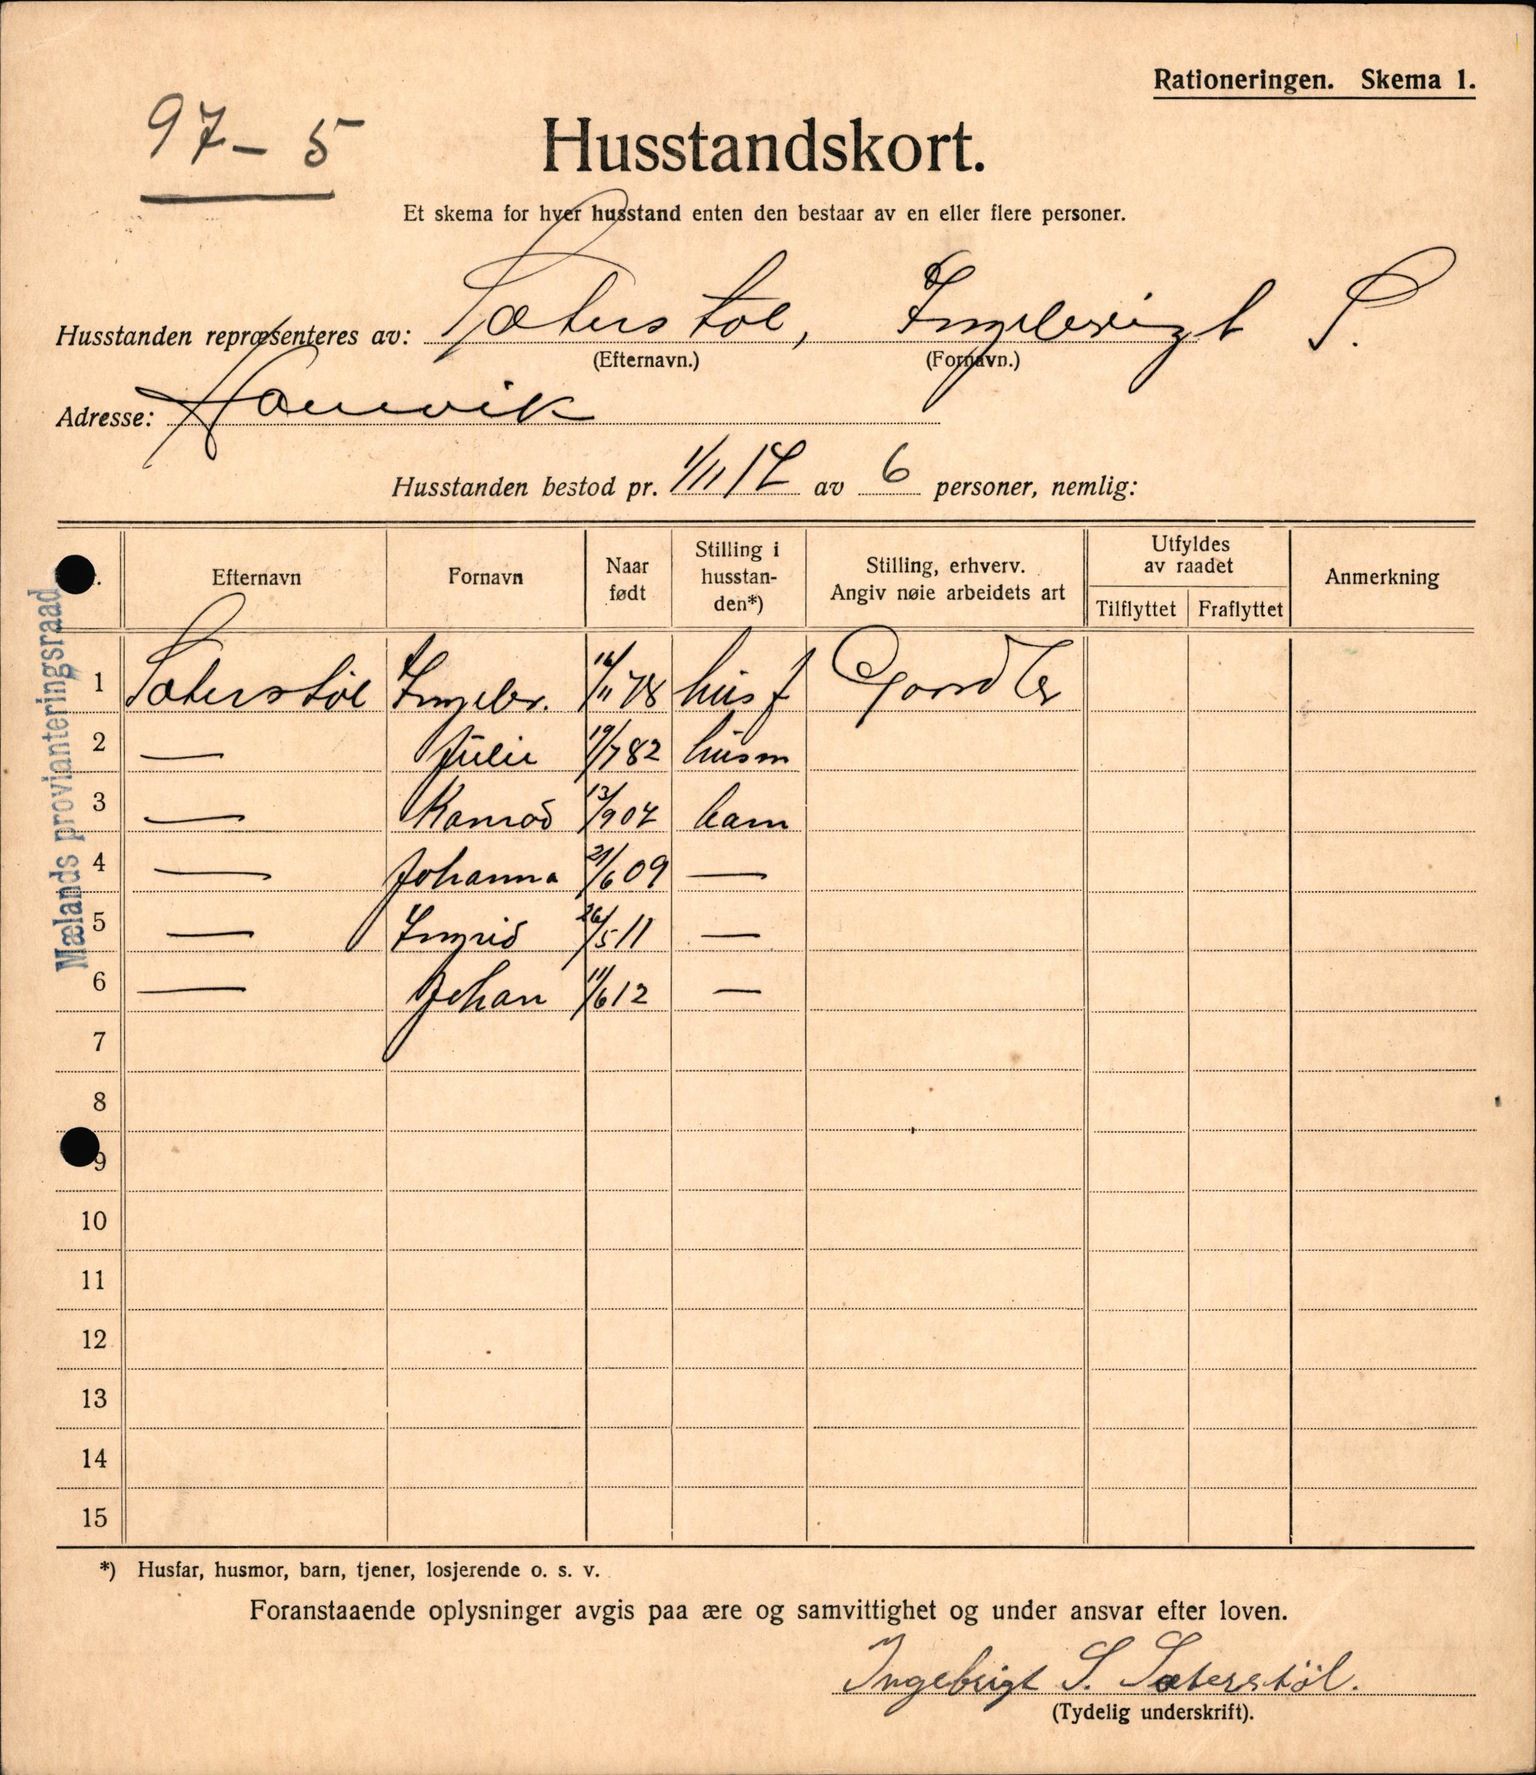 Rationeringen. Skema 1.
97 – 5
Husstandskort.
Et skema for hver husstand enten den bestaar av en eller flere personer.
Husstanden repræsenteres av: Sæterstøl, Ingebrigt S.
(Efternavn.) (Fornavn.)
Adresse:
Husstanden bestod pr. 1/11 17 av 6 personer, nemlig:
Efternavn Fornavn Naar født Stilling i husstan-den*) Stilling, erhverv. Angiv nøie arbeidets art Utfyldes av raadet Tilflyttet Fraflyttet Anmerkning
1 Sæterstøl Ingebr. 16/11 78 husf Gaardbr
2 — Julie 19/7 82 husm
3 — Konrad 13/9 07 barn
4 — Johanna 21/6 09 —
5 — Ingrid 26/5 11 —
6 — Johan 11/6 12 —
7
8
9
10
11
12
13
14
15
Mælands provianteringsraad
*) Husfar, husmor, barn, tjener, losjerende o. s. v.
Foranstaaende oplysninger avgis paa ære og samvittighet og under ansvar efter loven.
Ingebrigt S. Sæterstøl.
(Tydelig underskrift).